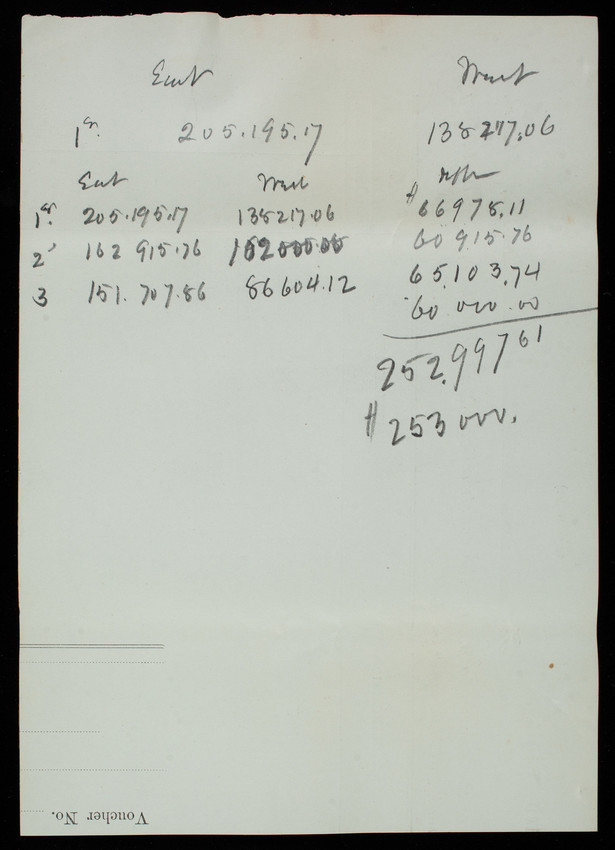 East West
1st. 205.195.17 138217.06
East West Diffr
1st. 205.195.17 138217.06 $66978.11
2d 162 915.76 102000.00 60 915.76
3 151.707.86 86604.12 65,103.74
60.000.00
252.997 61
$253 000.
Voucher No.